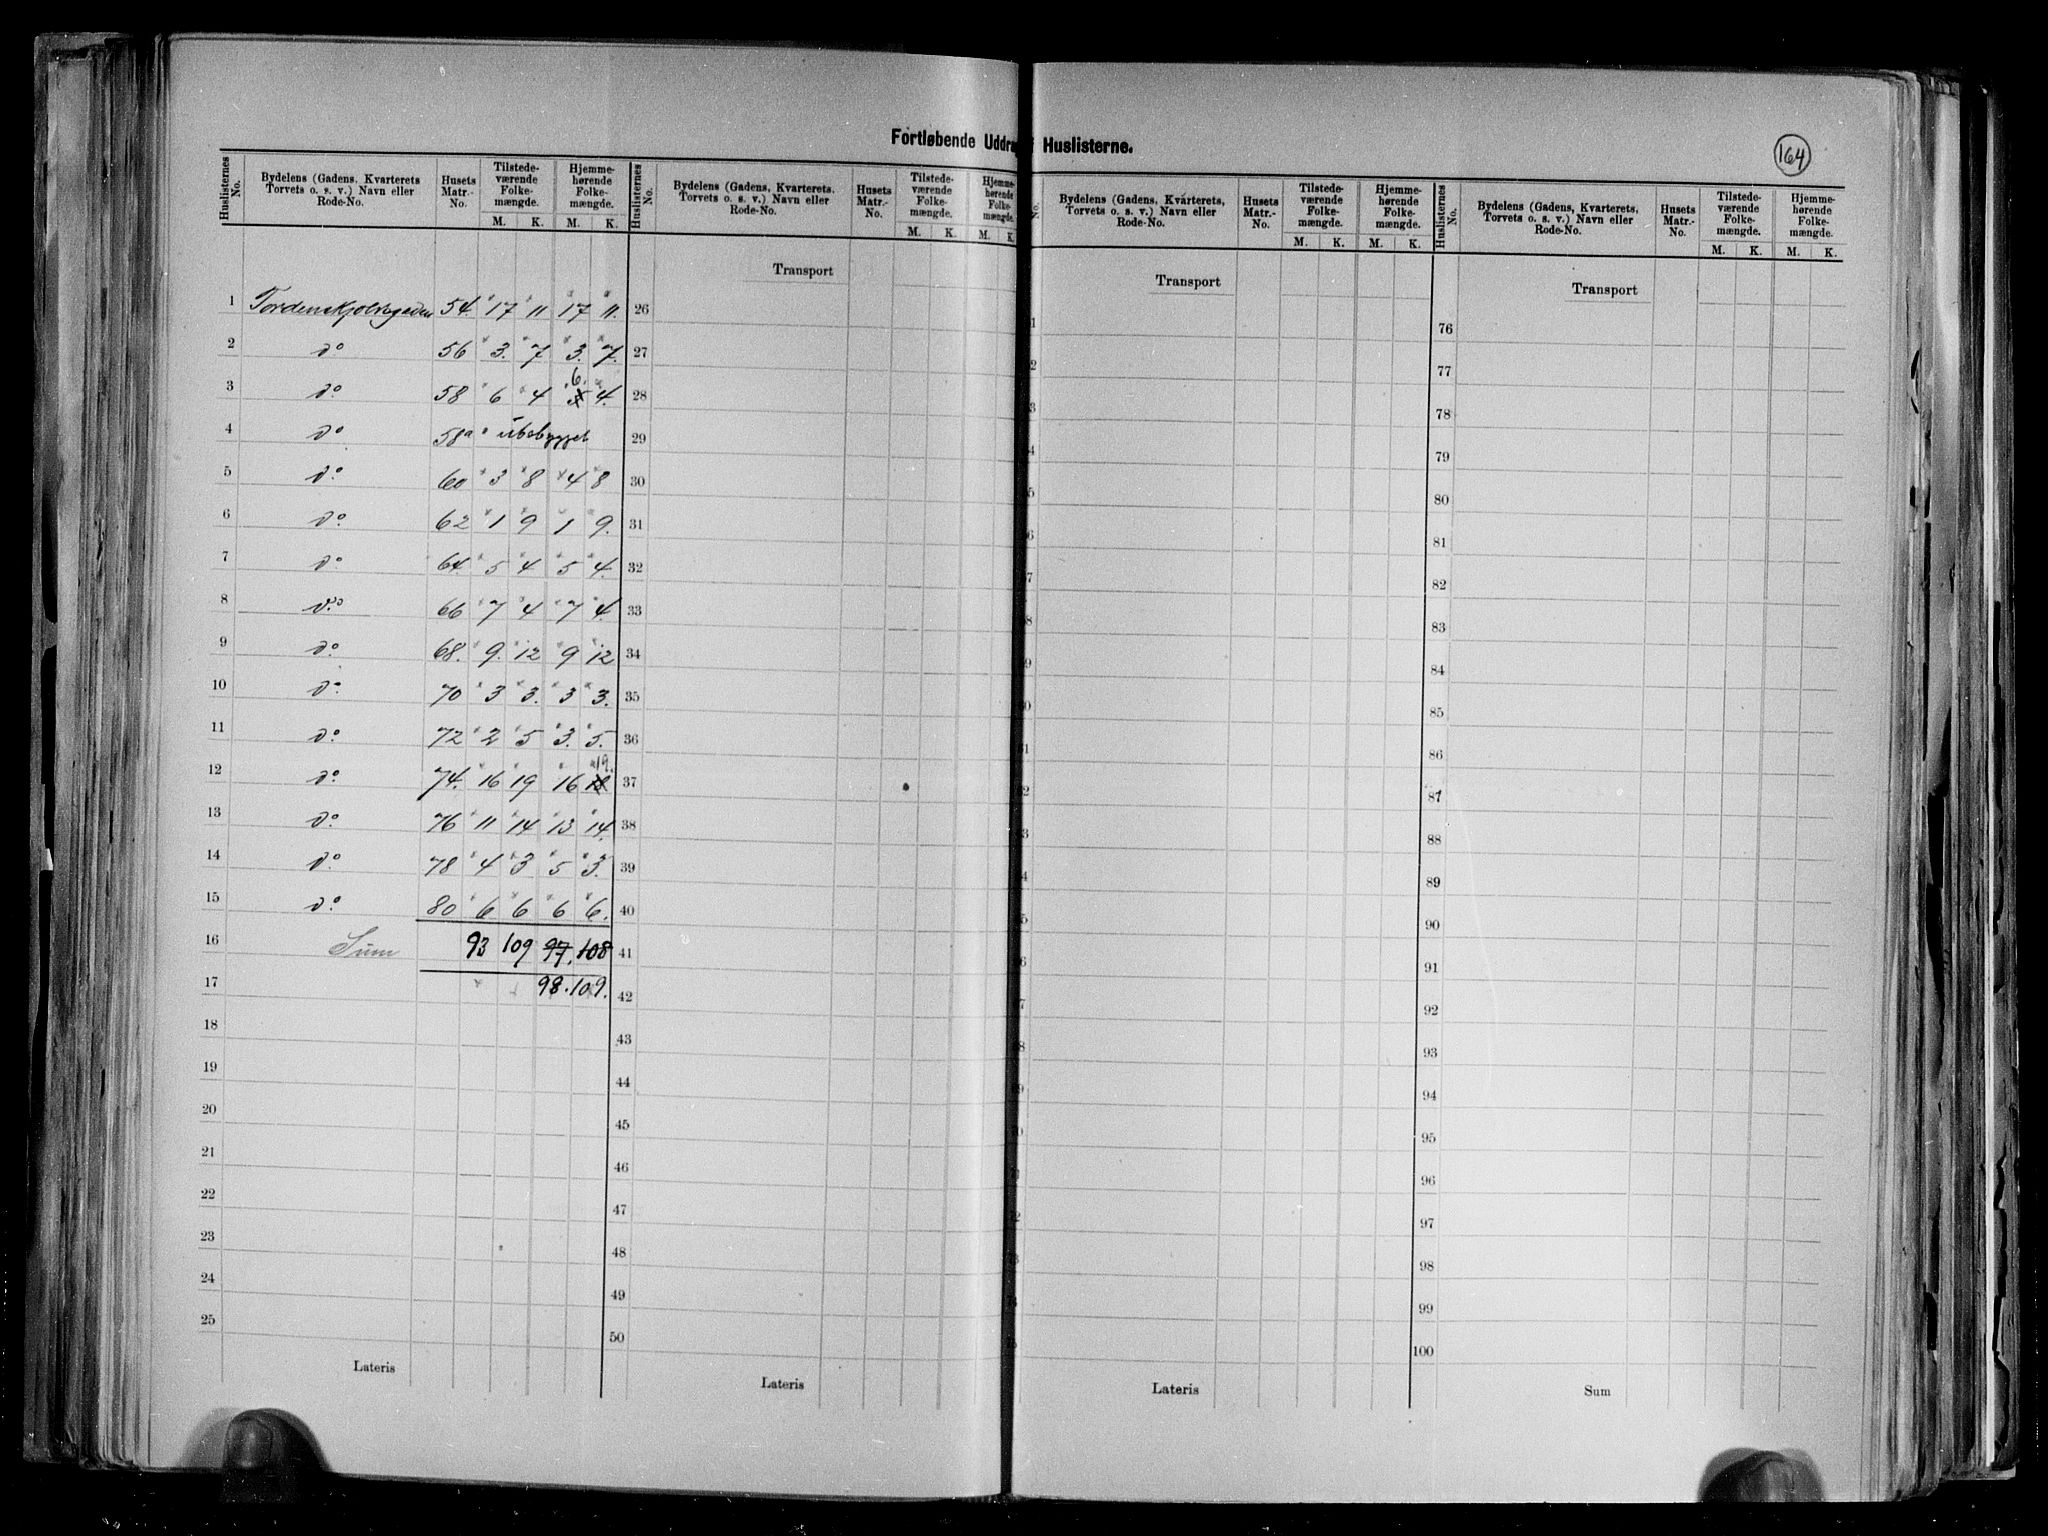 Fortløbende Uddrag f Huslisterne.
164
Huslisternes No. | Bydelens (Gadens, Kvarterets Torvets o. s. v.) Navn eller Rode-No. | Husets Matr.-No. | Tilstede-værende Folke-mængde. M. K. | Hjemme-hørende Folke-mængde. M. K.
1 Tordenskjoldsgaden 54. 17 11 17 11.
2 do 56 3. 7 3. 7.
3 do 58 6 4 5 6. 4.
4 do 58a ubebygget
5 do 60 3 8 4 8
6 do 62 1 9 1 9.
7 do 64. 5 4 5 4.
8 do 66 7 4 7 4.
9 do 68. 9. 12 9 12
10 do 70 3 3. 3 3.
11 do 72 2 5 3. 5.
12 do 74. 16 19 16 18 19.
13 do 76 11 14 13 14.
14 do 78 4 3 5 3.
15 do 80 6 6 6 6.
16 Sum 93 109 97. 108
17 98. 109.
18
19
20
21
22
23
24
25
Lateris
Huslisternes No. | Bydelens (Gadens, Kvarterets, Torvets o. s. v.) Navn eller Rode-No. | Husets Matr.-No. | Tilstede-værende Folke-mængde. M. K. | Hjemme-hørende Folke-mængde. M. K.
Transport
26
27
28
29
30
31
32
33
34
35
36
37
38
39
40
41
42
43
44
45
46
47
48
49
50
Lateris
No. | Bydelens (Gadens, Kvarterets, Torvets o. s. v.) Navn eller Rode-No. | Husets Matr.-No. | Tilstede-værende Folke-mængde. M. K. | Hjemme-hørende Folke-mængde. M. K.
Transport
Lateris
Huslisternes No. | Bydelens (Gadens, Kvarterets, Torvets o. s. v.) Navn eller Rode-No. | Husets Matr.-No. | Tilstede-værende Folke-mængde. M. K. | Hjemme-hørende Folke-mængde. M. K.
Transport
76
77
78
79
80
81
82
83
84
85
86
87
88
89
90
91
92
93
94
95
96
97
98
99
100
Sum